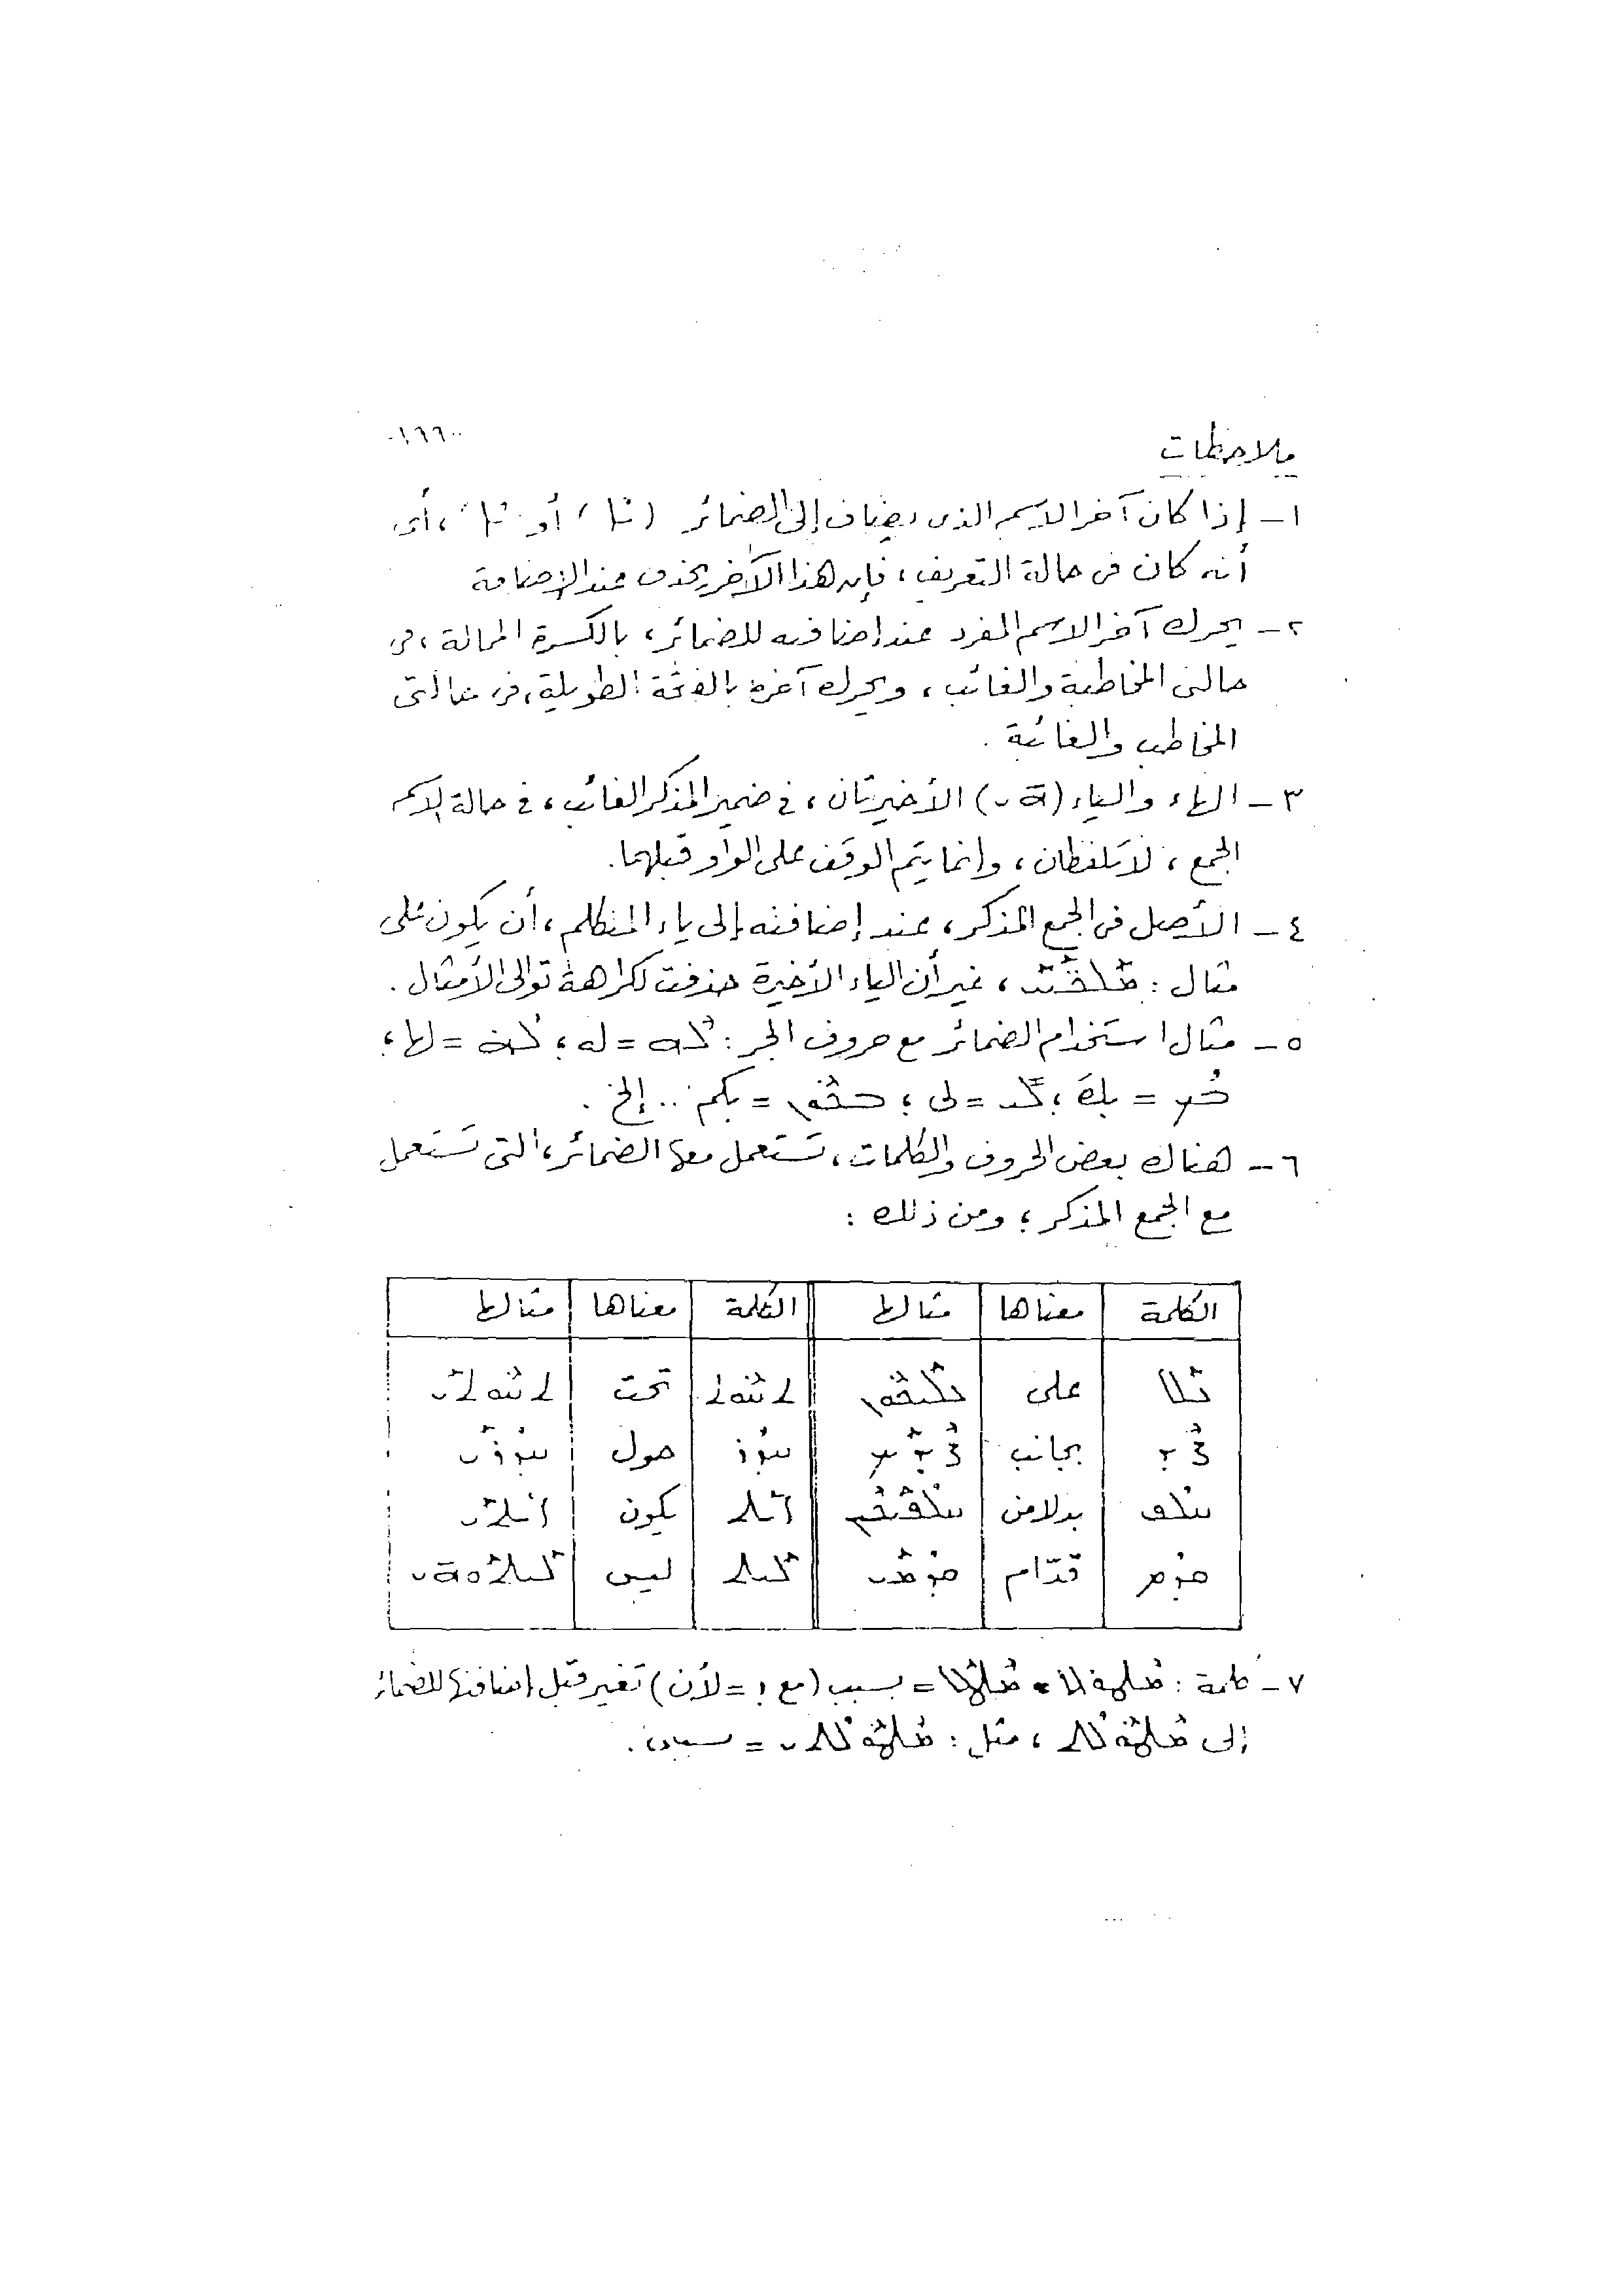 ملاحظات
١ـ إذا كان آخر الاسم الذى يضاف إلى الضمائر أو أى
أنه كان فى حالة التعريف، فإن هذا الآخر يحذف عند الإضافة
٢ـ يحرك آخر الاسم المفرد عند إضافته للضمائر، بالكسرة الممالة، فى
حالتى المخاطبة والغائب، ويحرك آخره بالفتحة الطويلة، فى حالتى
المخاطب والغائبة .
٣ـ الهاء والياء (ܗ ܝ) الأخيرتان، فى ضمير المذكر الغائب، فى حالة الاسم
الجمع، لا تلفظان، وإنما يتم الوقف على الواو قبلهما.
٤ـ الأصل فى الجمع المذكر، عند إضافته إلى ياء المتكلم، أن يكون على
مثال : غير أن الياء الأخيرة حذفت لكراهة توالى الأمثال .
٥ـ مثال استخدام الضمائر مع حروف الجر : ܠܗ = له ؛ ܠܗ = لها ؛
ܒܟ = بكَ ؛ ܠܝ = لى ؛ ܒܟܘܢ = بكم .. إلخ .
٦ـ هناك بعض الحروف والكلمات، تستعمل معها الضمائر، التى تستعمل
مع الجمع المذكر ؛ ومن ذلك :
الكلمة معناها مثالها الكلمة معناها مثالها
ܥܠ على ܥܠܝܟܘܢ ܬܚܘܬ تحت ܬܚܘܬܝ
ܨܝܕ بجانب ܨܝܕܝܟ حول
ܚܠܦ بدلا من ܚܠܦܝܟ ܐܝܬ يكون ܐܝܬܝ
ܩܕܡ قدّام ܩܕܡܝ ܠܝܬ ليس ܠܝܬܘܗܝ
٧ـ كلمة : ܡܛܠ = بسبب (مع ܕ = لأن) تغير قبل إضافتها للضمائر
إلى ܡܛܠܬ ، مثل : ܡܛܠܬܝ = بسببى .